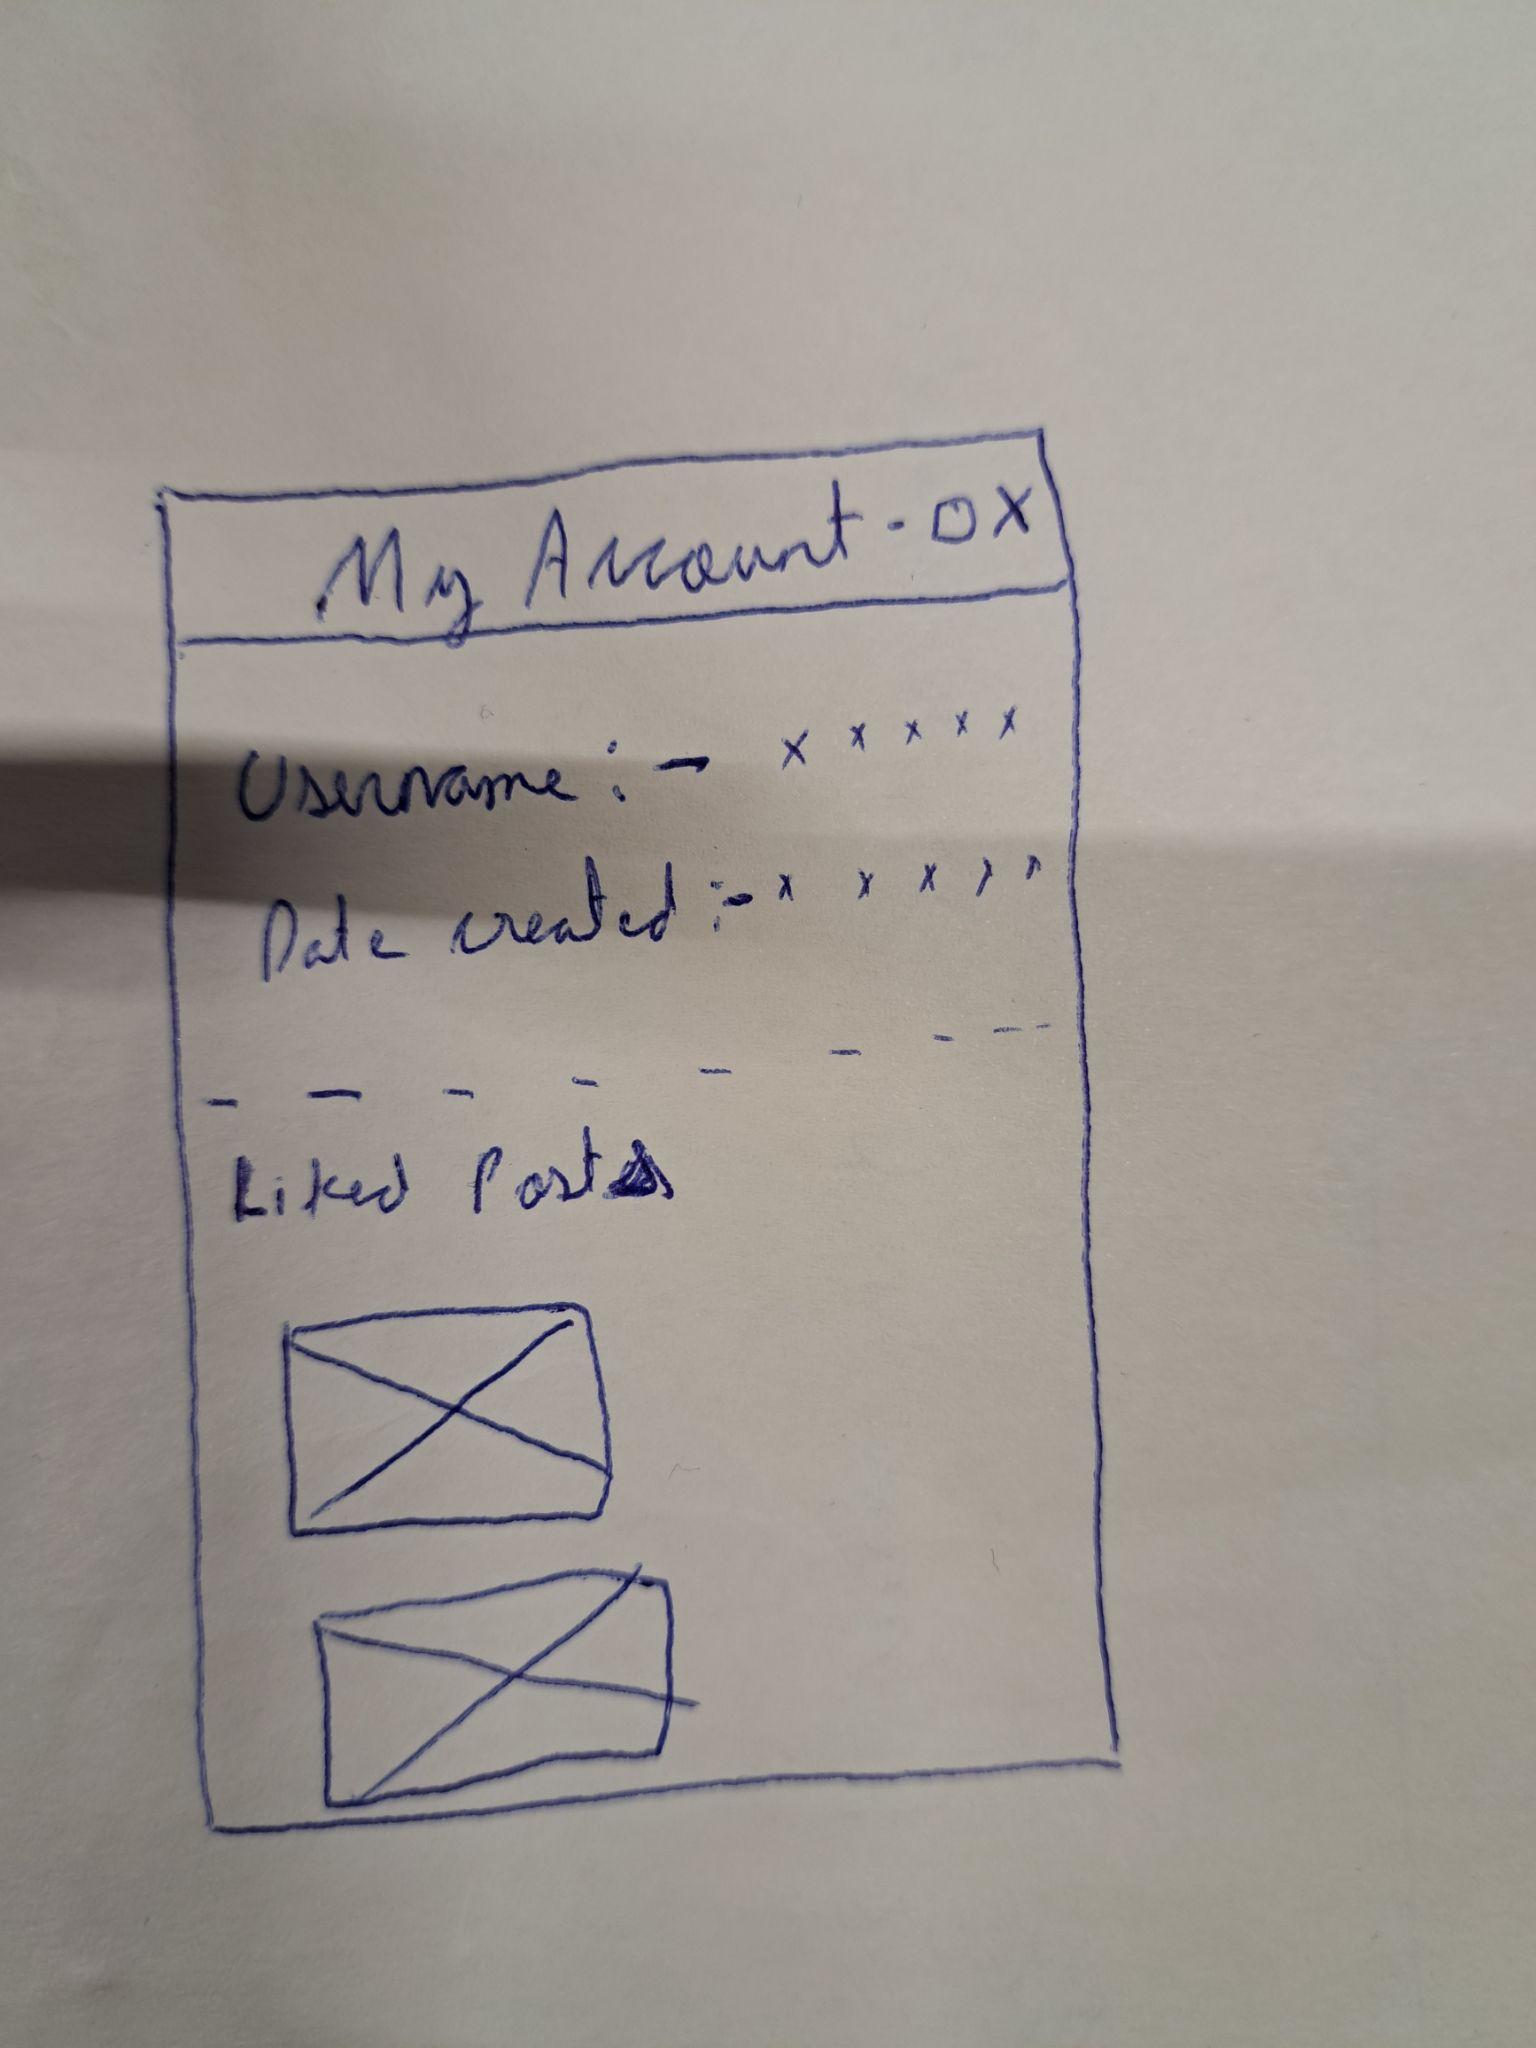 My Account - □ X
Username :- x x x x x
Date created :- x x x x x
Liked Posts